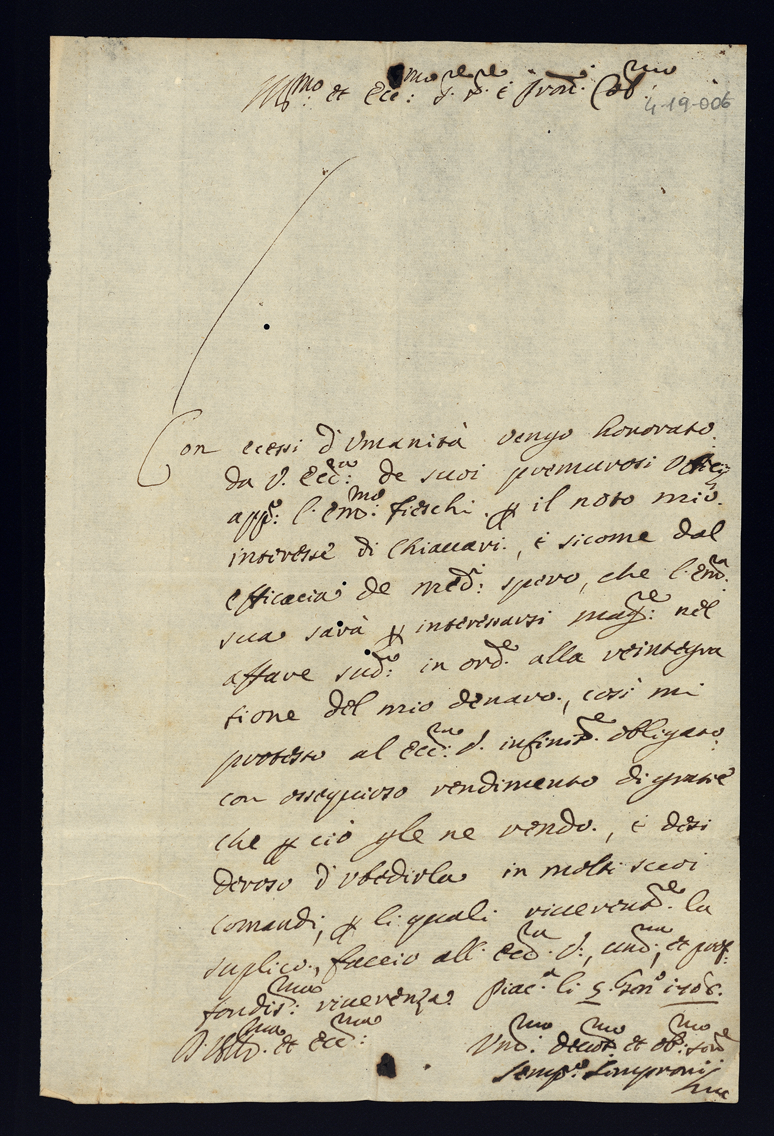 Ill:mo et Ecc:mo Sig.re Sig.re e Pron. Col:mo
4-19-006
Con ecessi d'Vmanità vengo honorato
da V. Ecc:za de suoi premurosi
app:o l'Em:mo Fieschi ꝑ il noto mio
interesse di Chiavari, e sicome dal
efficacia de med:i spero, che l'Em:za
sua sarà ꝑ interessarsi mag:re nel
affare sud:o in ord.e alla reintegra
tione del mio denaro, così mi
protesto al Ecc:za V. infinit.e obligato
con ossequioso rendimento di gratie
che ꝑ ciò gle ne rendo, e desi
deroso d'Vbedirla in molti suoi
comandi, ꝑ li quali riuerent.e la
suplico, faccio all' Ecc:za V. um:ma, et prof
fondis:ma riuerenza. Piac.a li 5. Gen:o 1706.
D. V. Ill:ma et Ecc:ma
Vm:mo deuot:mo et ob:mo ser.e
Semp.o Sempronij